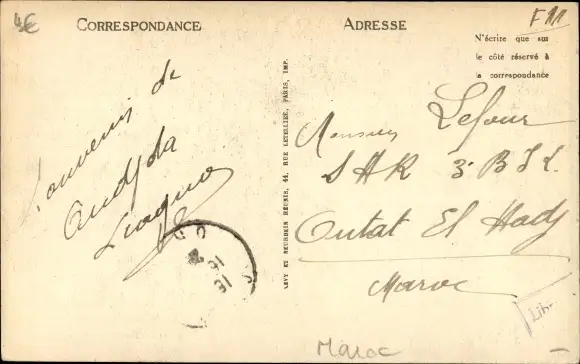 4€
F11
CORRESPONDANCE
ADRESSE
N'écrire que sur
le côté réservé à
la correspondance
Souvenir de
Oudjda
LEVY ET NEURDEIN RÉUNIS, 44, RUE LETELLIER, PARIS, IMP.
Monsieur Lefour
3e
Outat El Hadj
Maroc
Maroc